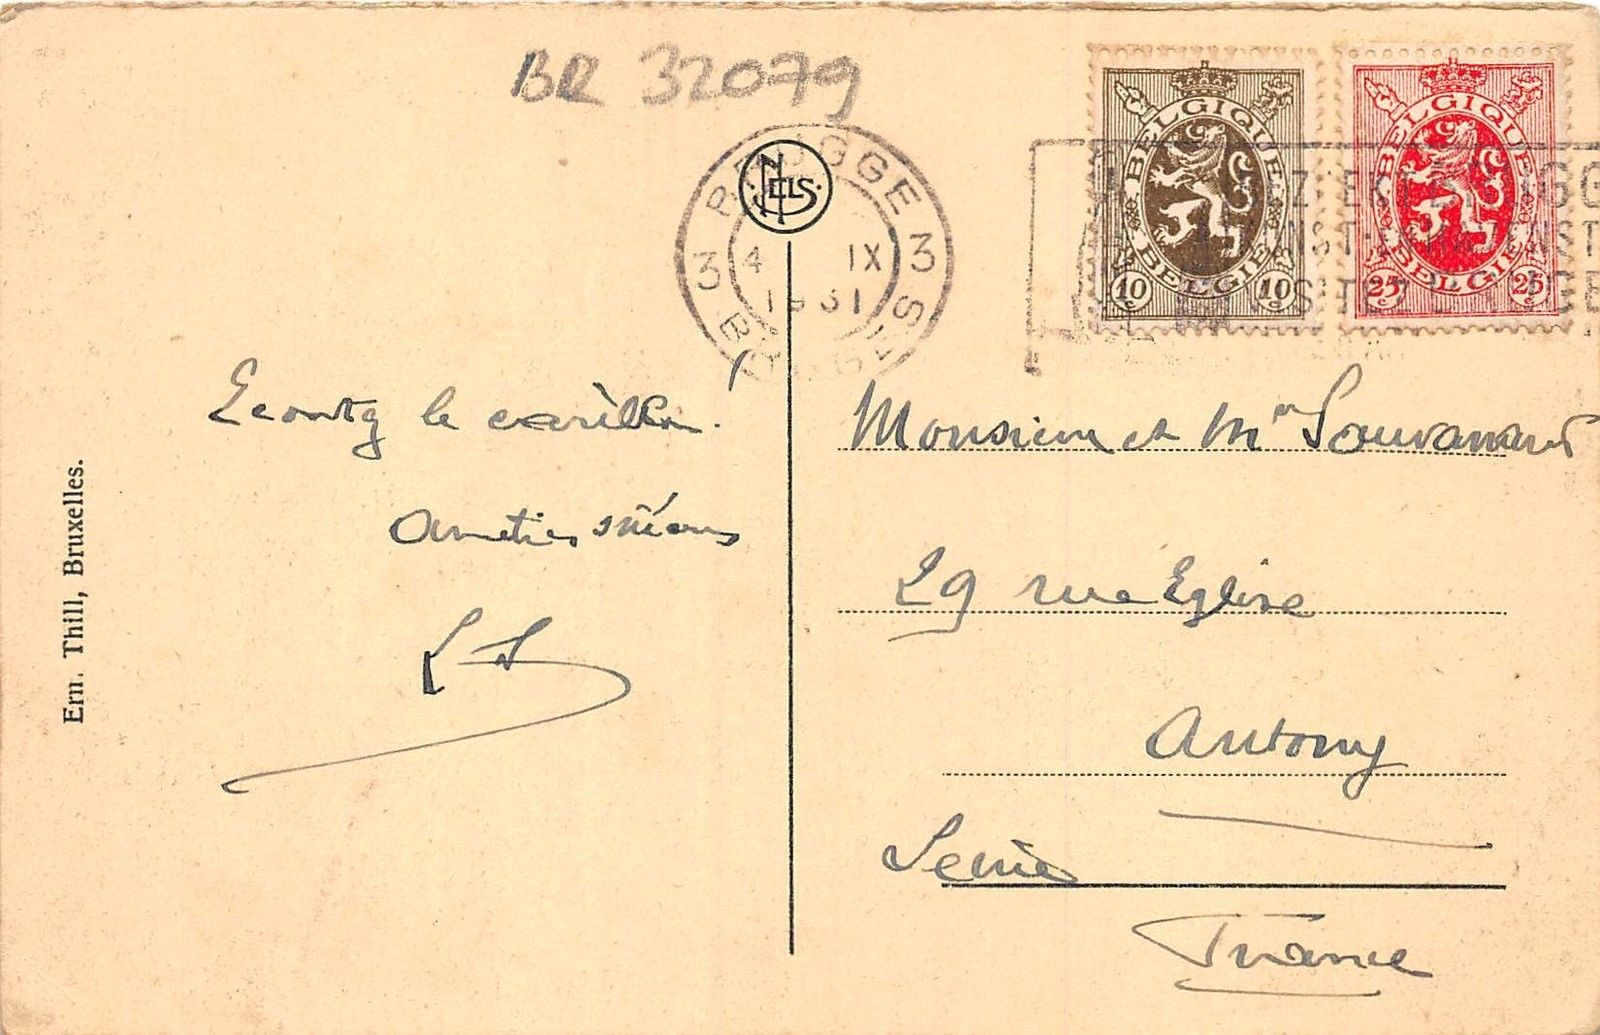 BR 32079
BRUGGE
3 3
4 IX
1931
NELS
BELGIQUE
BELGIE
10 10
BELGIQUE
BELGIE
25 25
Ecoutez le carillon!
Amitiés
LS
Ern. Thill, Bruxelles.
Monsieur et Mme
29 rue Eglise
Antony
Seine
France